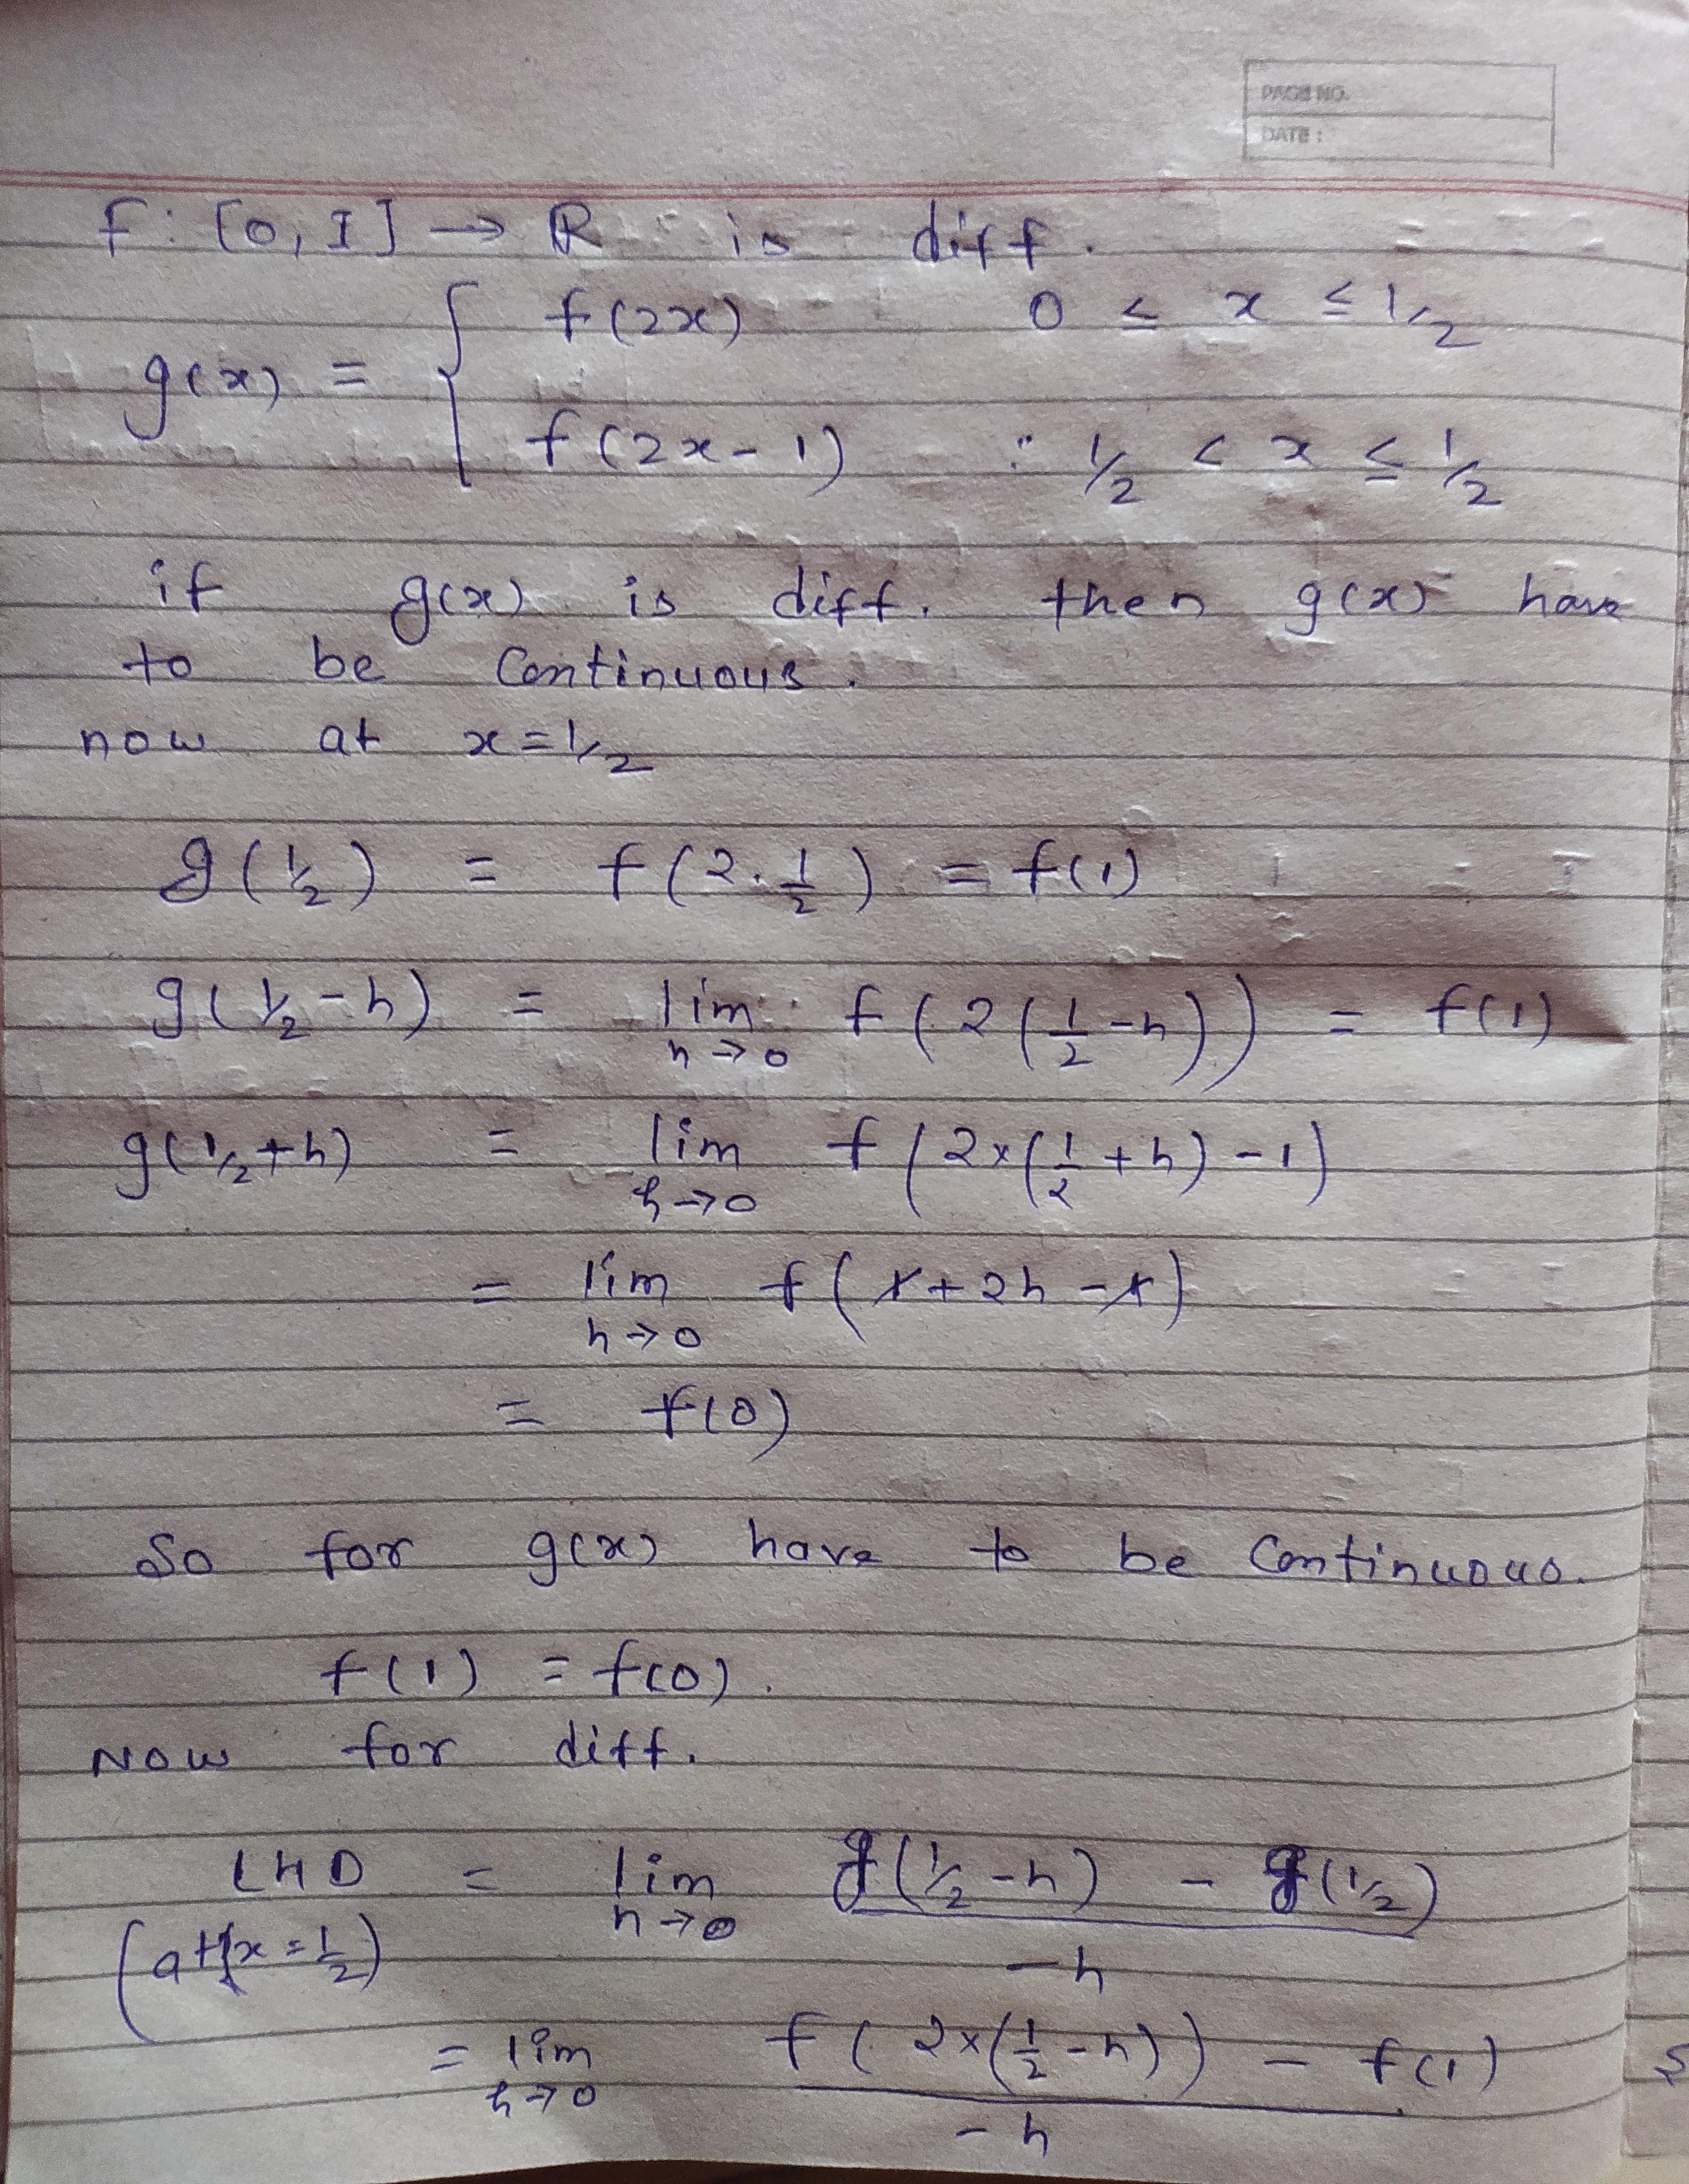 PAGE NO.
DATE :
f : [0, I] → R is diff.
g(x) = { f(2x) 0 ≤ x ≤ 1/2
f(2x-1) : 1/2 < x ≤ 1/2
if g(x) is diff. then g(x) have
to be continuous.
now at x = 1/2
g(1/2) = f(2.1/2) = f(1)
g(1/2-h) = lim h→0 f(2(1/2-h)) = f(1)
g(1/2+h) = lim h→0 f(2×(1/2+h)-1)
= lim h→0 f(1+2h-1)
= f(0)
So for g(x) have to be continuous.
f(1) = f(0).
NOW for diff.
LHD (at x=1/2) = lim h→0 g(1/2-h) - g(1/2) / -h
= lim h→0 f(2×(1/2-h)) - f(1) / -h